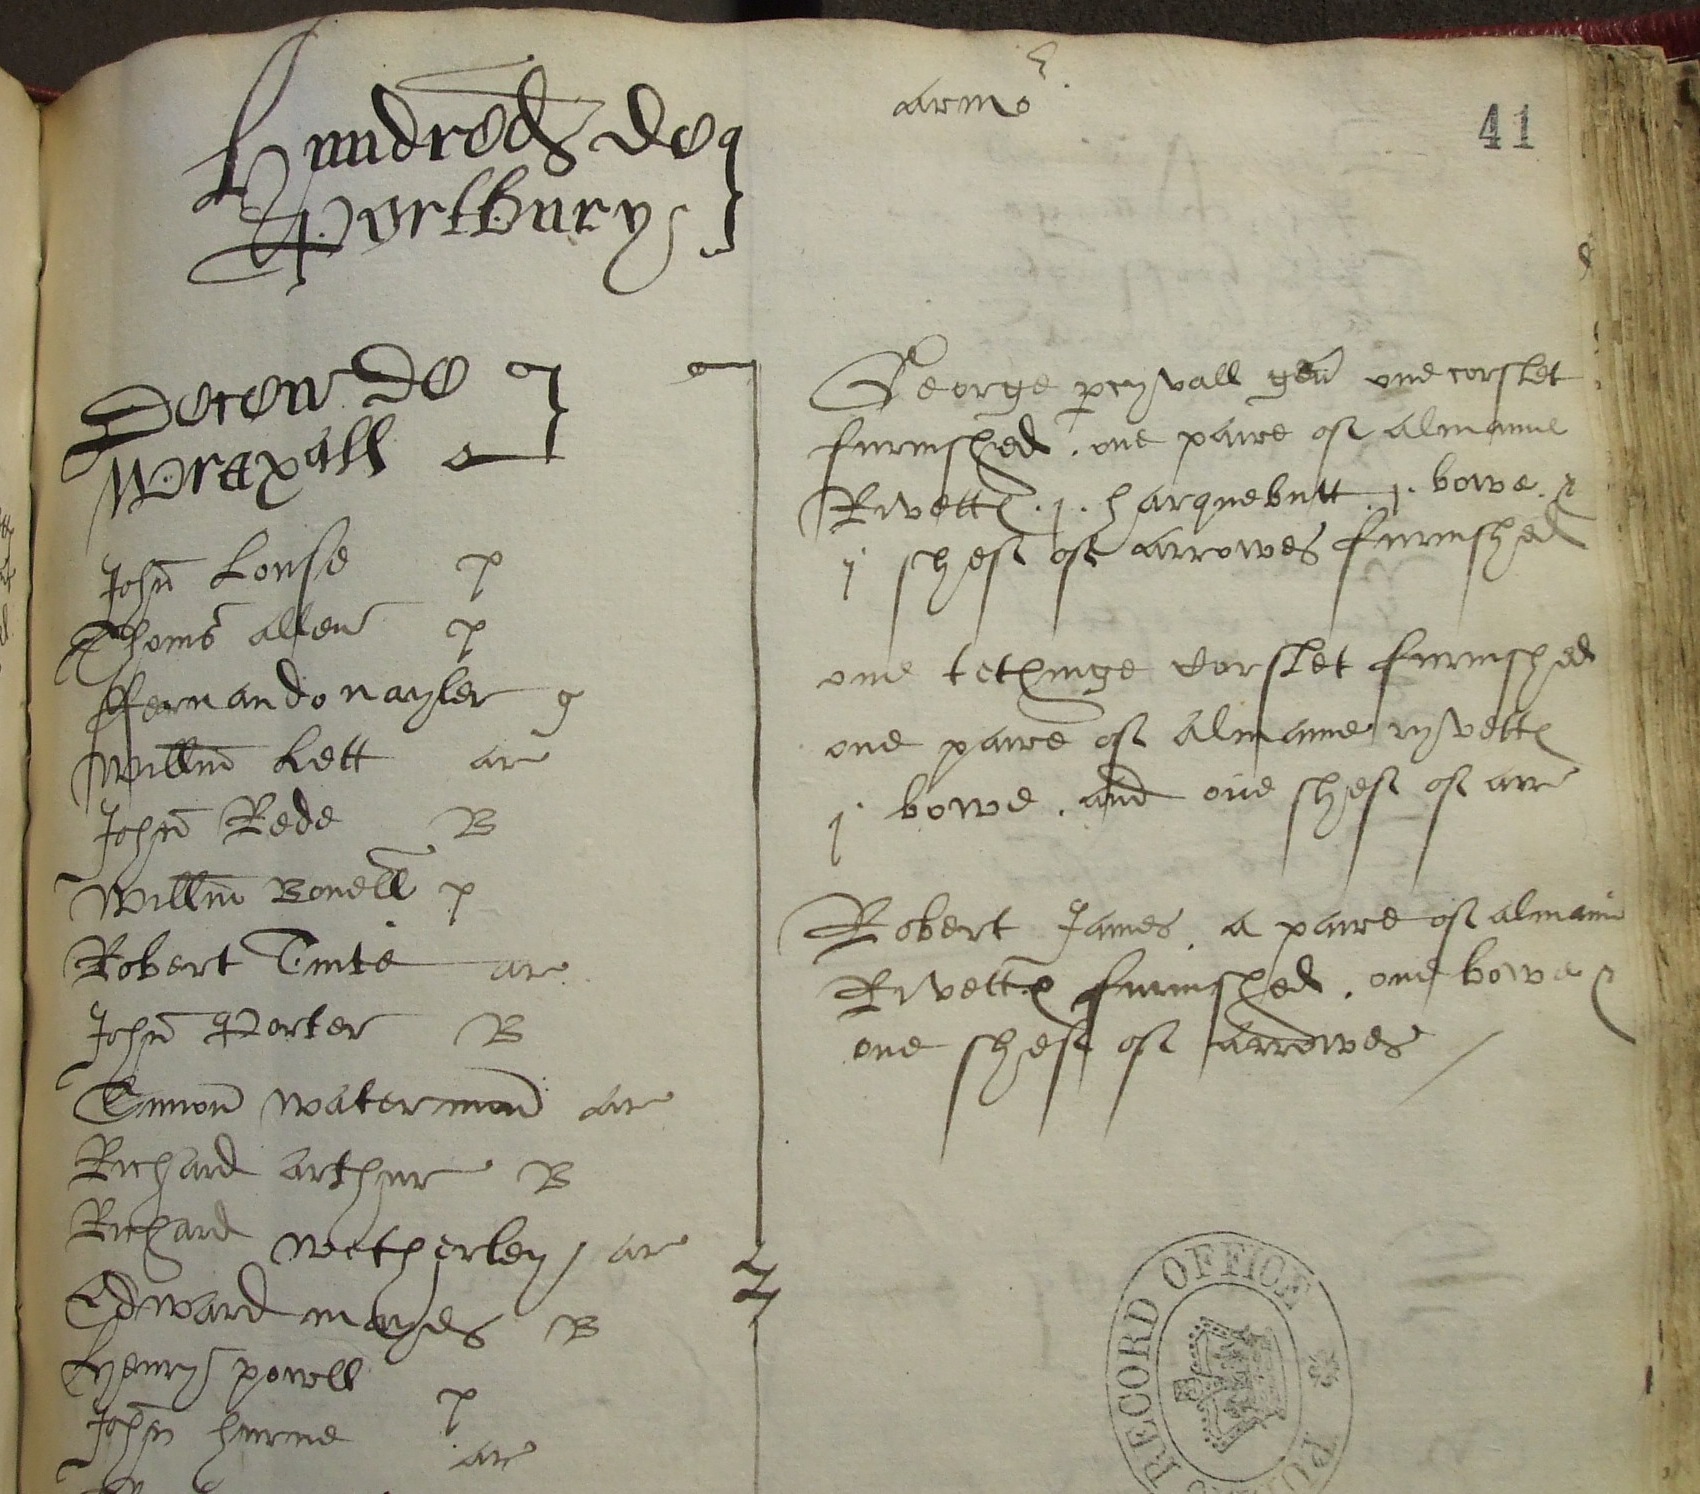 Hundred de
Portbury
armo
41
Decen de
Wraxall
John Louse p
Thoms allen p
ffernando nayler g
Willm Lett ar
John Rede B
Willm Bonell p
Robert Tinte ar
John Porter B
Simon waterman ar
Richard arthur B
Richard wetherley ar
Edward mayes B
Henry powell p
John hurne ar
George pcyvall gen one corslet
furnished. one paire off almaine
Rivett . j . harquebutt . j . bowe . &
j sheff off arrowes furnished
one tethinge corslet furnished
one paire off almaine ryvett
j bowe . and one sheff off arr
Robert James . a paire off almain
Rivett furnished . one bowe &
one sheff off arrowes
RECORD OFFICE